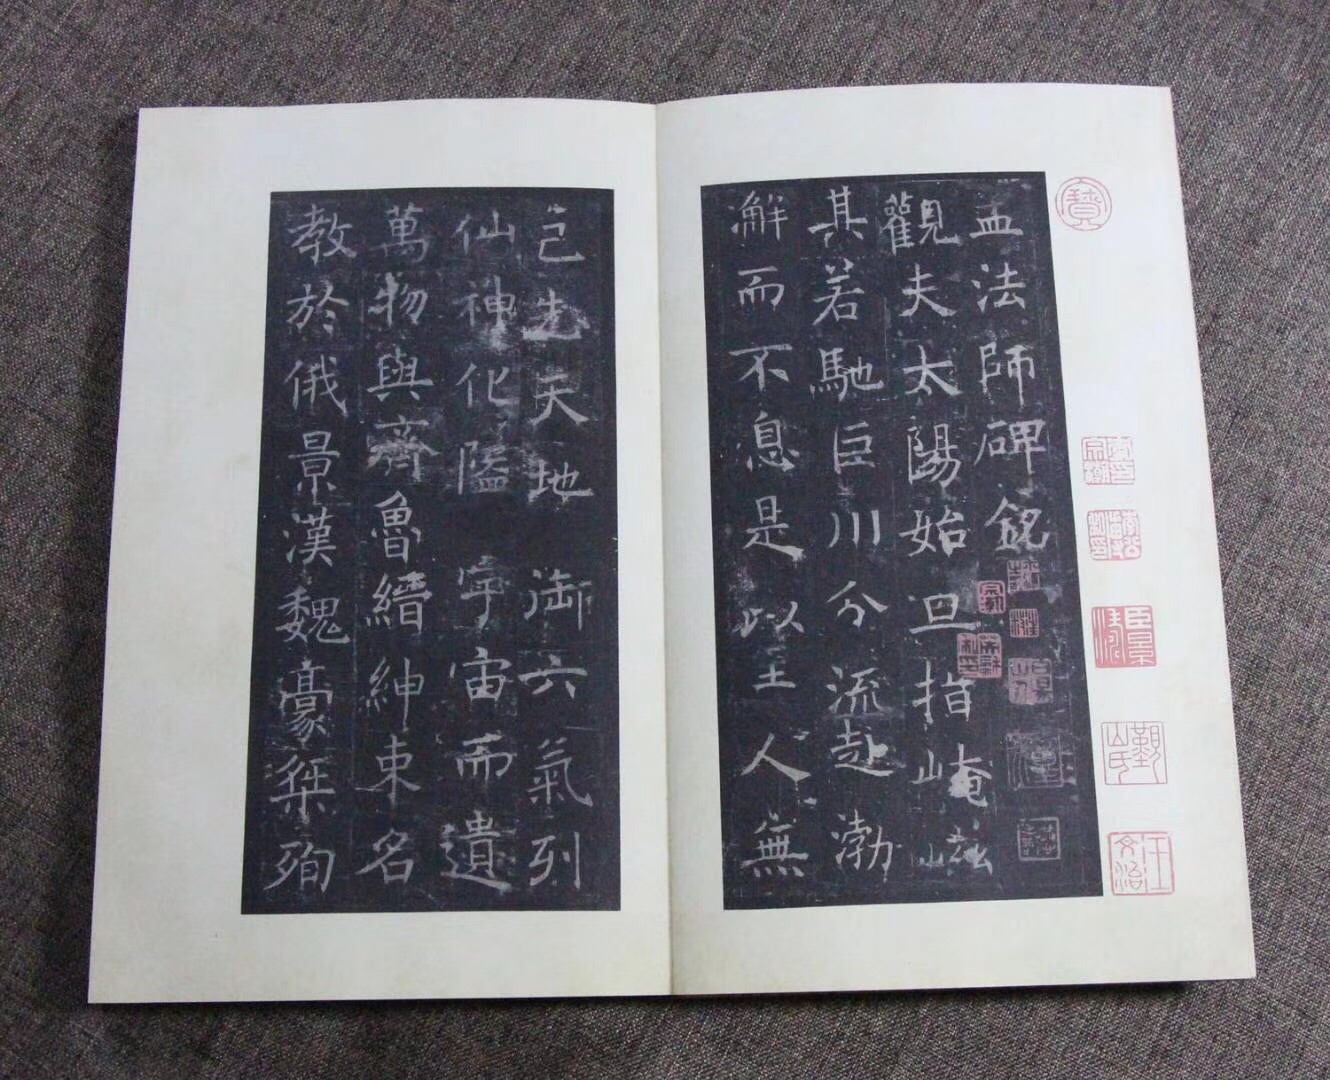 孟法師碑銘
觀夫太陽始旦指崦嵫
其若馳巨川分流赴渤
澥而不息是以至人無
己先天地御六氣列
仙神化隘宇宙而遺
萬物與齊魯縉紳束名
教於俄景漢魏豪桀殉
寶
臣景濩
觀山氏
王文治